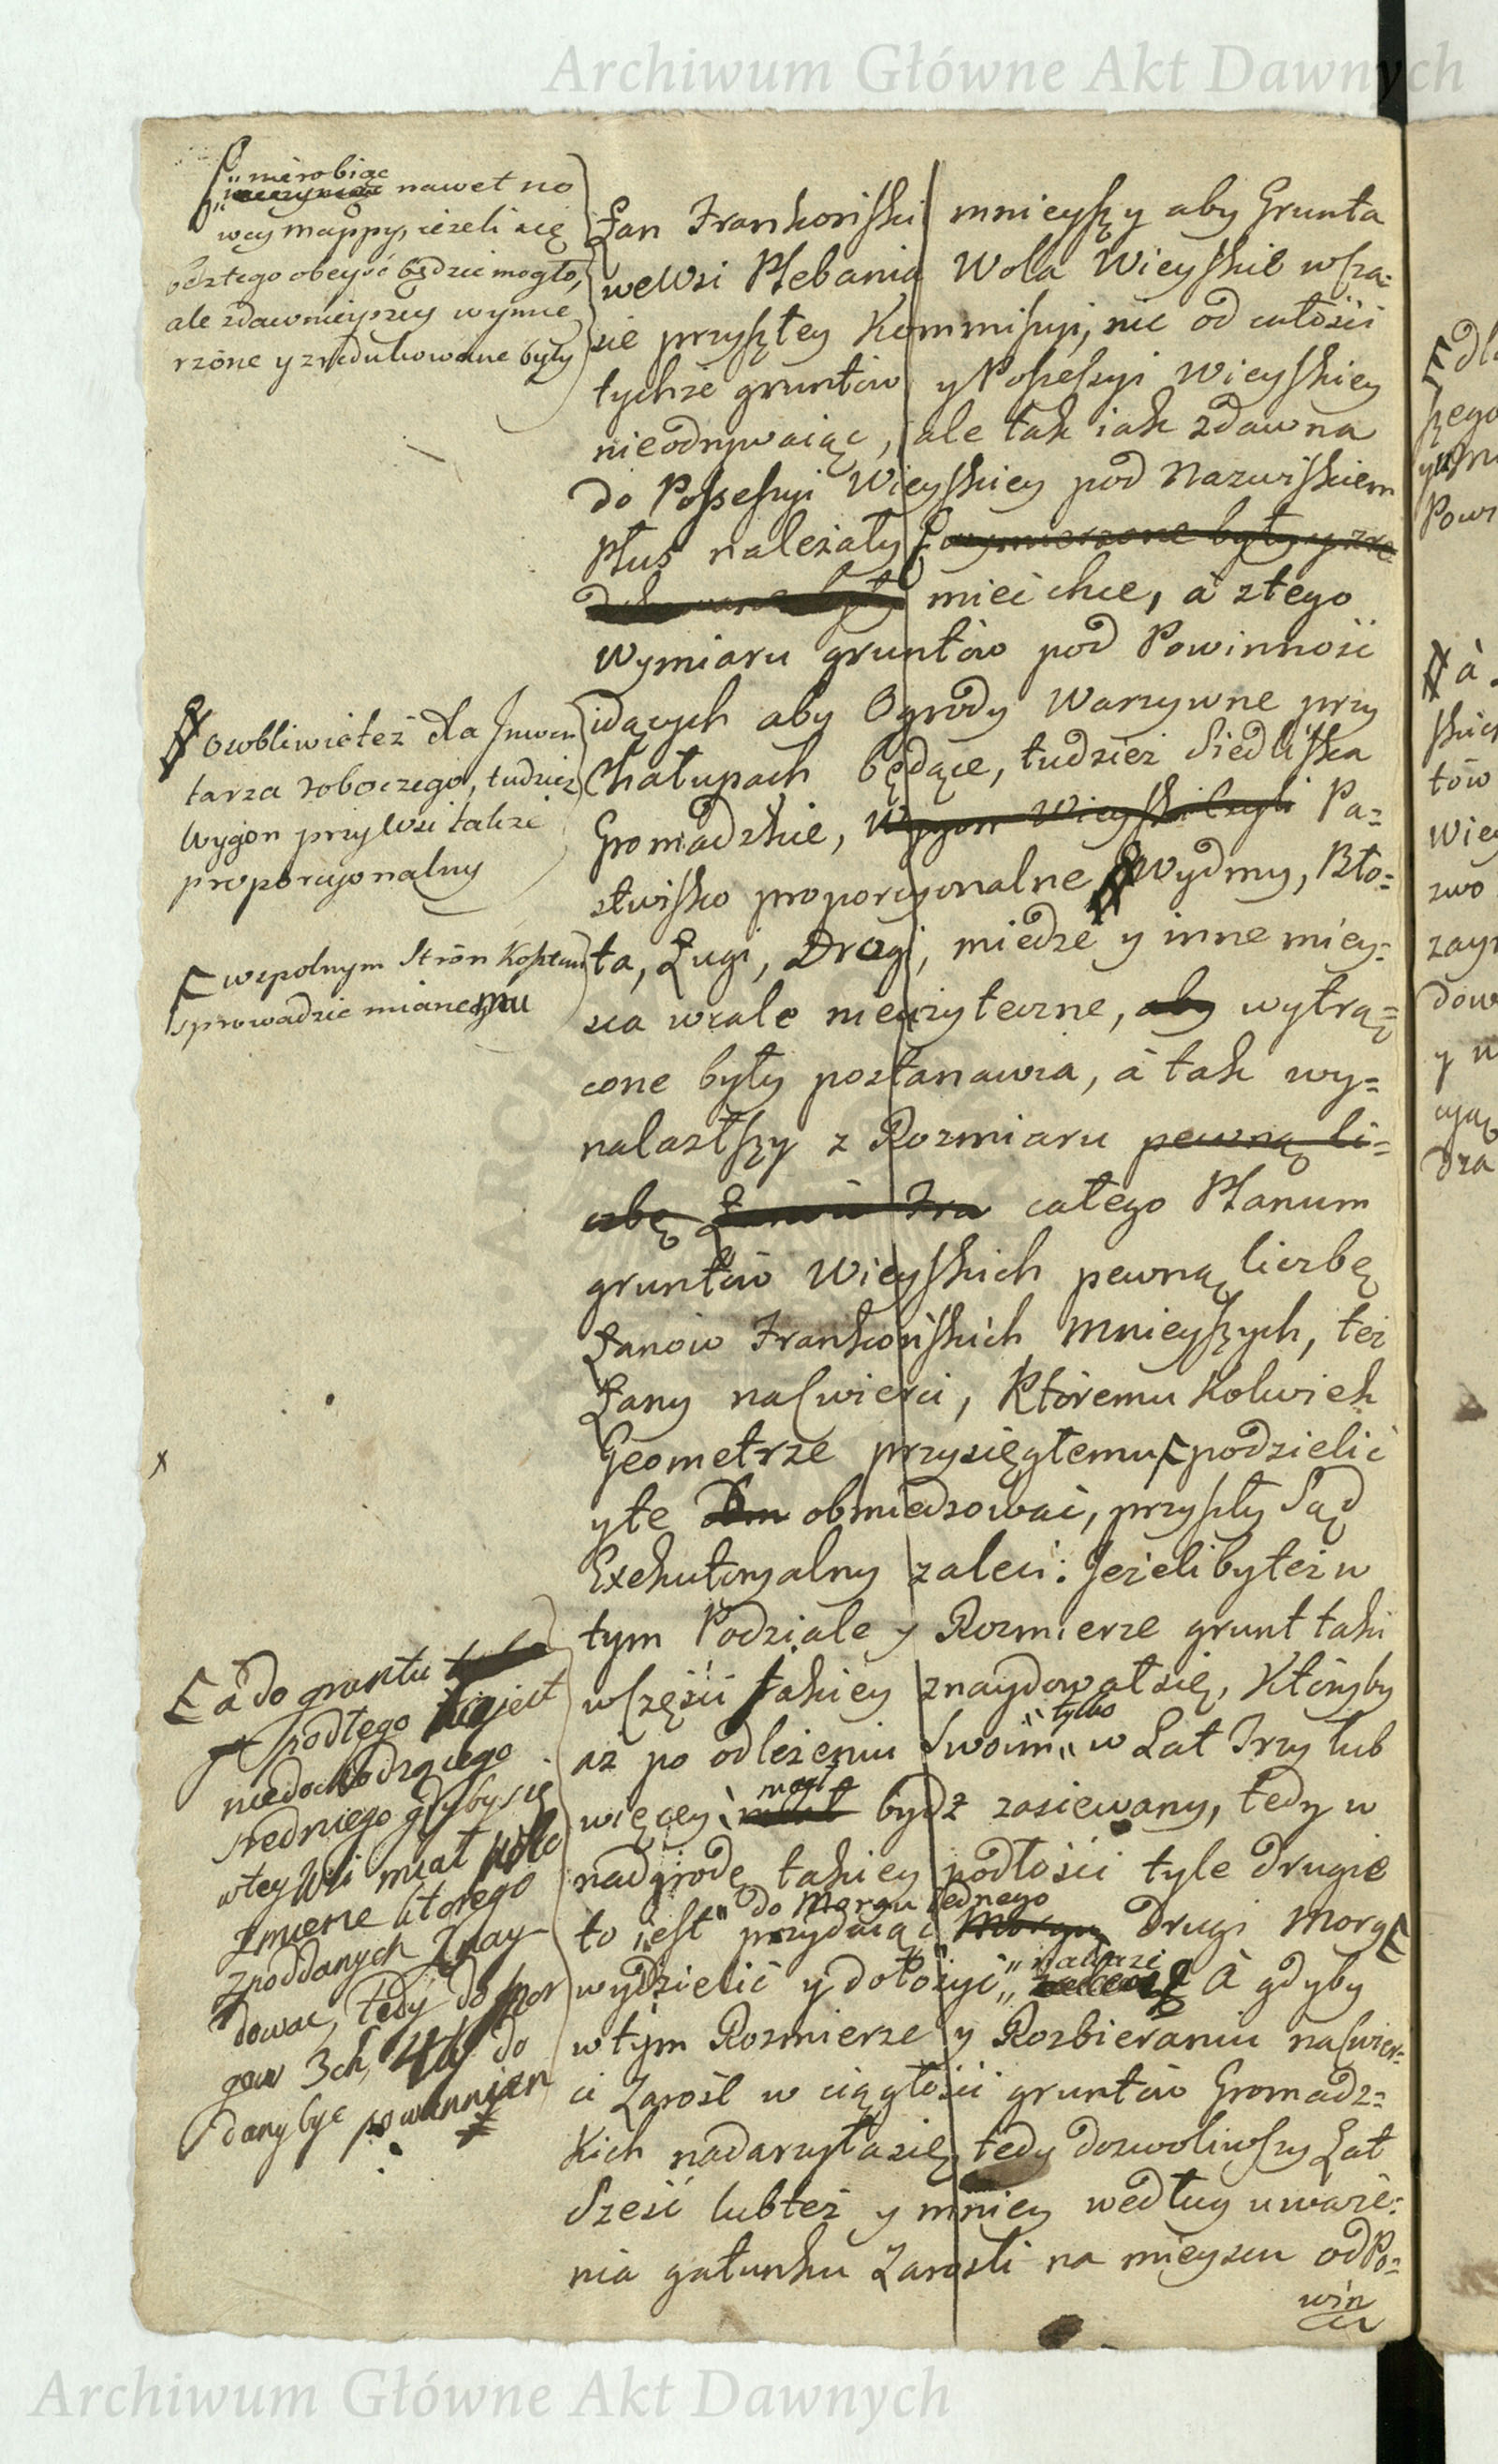 Archiwum Główne Akt Dawnych
nierobiąc
nawet no
wey mappy, ieżeli się
beztego obeyść będzie mogło,
ale zdawnieyszey wymie
rzone y zredukowane były
Łan Frankoński mnieyszy aby Grunta
we Wsi Plebania Wola Wieyskie wcza=
sie przyszłey Kommissyi, nic od całości
tychże gruntów y Possessyi Wieyskiey
nieodrywaiąc, ale tak iak zdawna
do Possessyi Wieyskiey pod Nazwiskiem
Plus należały wymierzone były y zre
dukowane były mieć chce, á ztego
Wymiaru gruntów pod Powinność
idących aby Ogrody Warzywne przy
Chałupach będące, tudzież Siedliska
Gromadzkie, Wygon Wieyski czyli Pa=
stwisko proporcyonalne Wydmy, Bło=
ta, Ługi, Drogi, miedze y inne miey=
sca wcale nieużyteczne, aby wytrą=
cone były postanawia, á tak wy=
nalazłszy z Rozmiaru pewną li=
czbę Łanów Fra całego Planum
gruntów Wieyskich pewną liczbę
Łanów Frankońskich Mnieyszych, też
Łany naćwierci, Któremu Kolwiek
Geometrze przysięgłemu podzielić
yte obmiedzować, przyszły Sąd
Exekutoryalny zaleci: Jeżeli byteż w
tym Podziale y Rozmierze grunt taki
wczęści takiey znaydował się, Któryby
aż po odleżeniu Swoim tylko w Lat Trzy lub
więcey mógł bydź zasiewany, tedy w
nadgrodę takiey podłości tyle drugie
to iest przydaiąc do Morgu iednego Drugi Morg
wydzielić y dołożyć nakaże A gdyby
wtym Rozmierze y Rozbieraniu naćwier=
ci Zarośl w ciągłości gruntów Gromadz=
kich nadarzyła się, tedy dozwoliwszy Lat
Sześć lubteż y mniey według uważe=
nia gatunku Zarośli na mieyscu od Po=
win
Osobliwie też dla Jnwen
tarza roboczego, tudzież
Wygon przy Wsi także
proporcyonalny
wspolnym Stron Kosztem
sprowadzić mianemu
x
á do gruntu
podłego to jest
niedochodzącego
sredniego gdyby się
wtey Wsi miał
zmienie ktorego
zpoddanych znay
dować, tedy do Mor
gow 3ch, 4ty do
dany być powinnien
Archiwum Główne Akt Dawnych